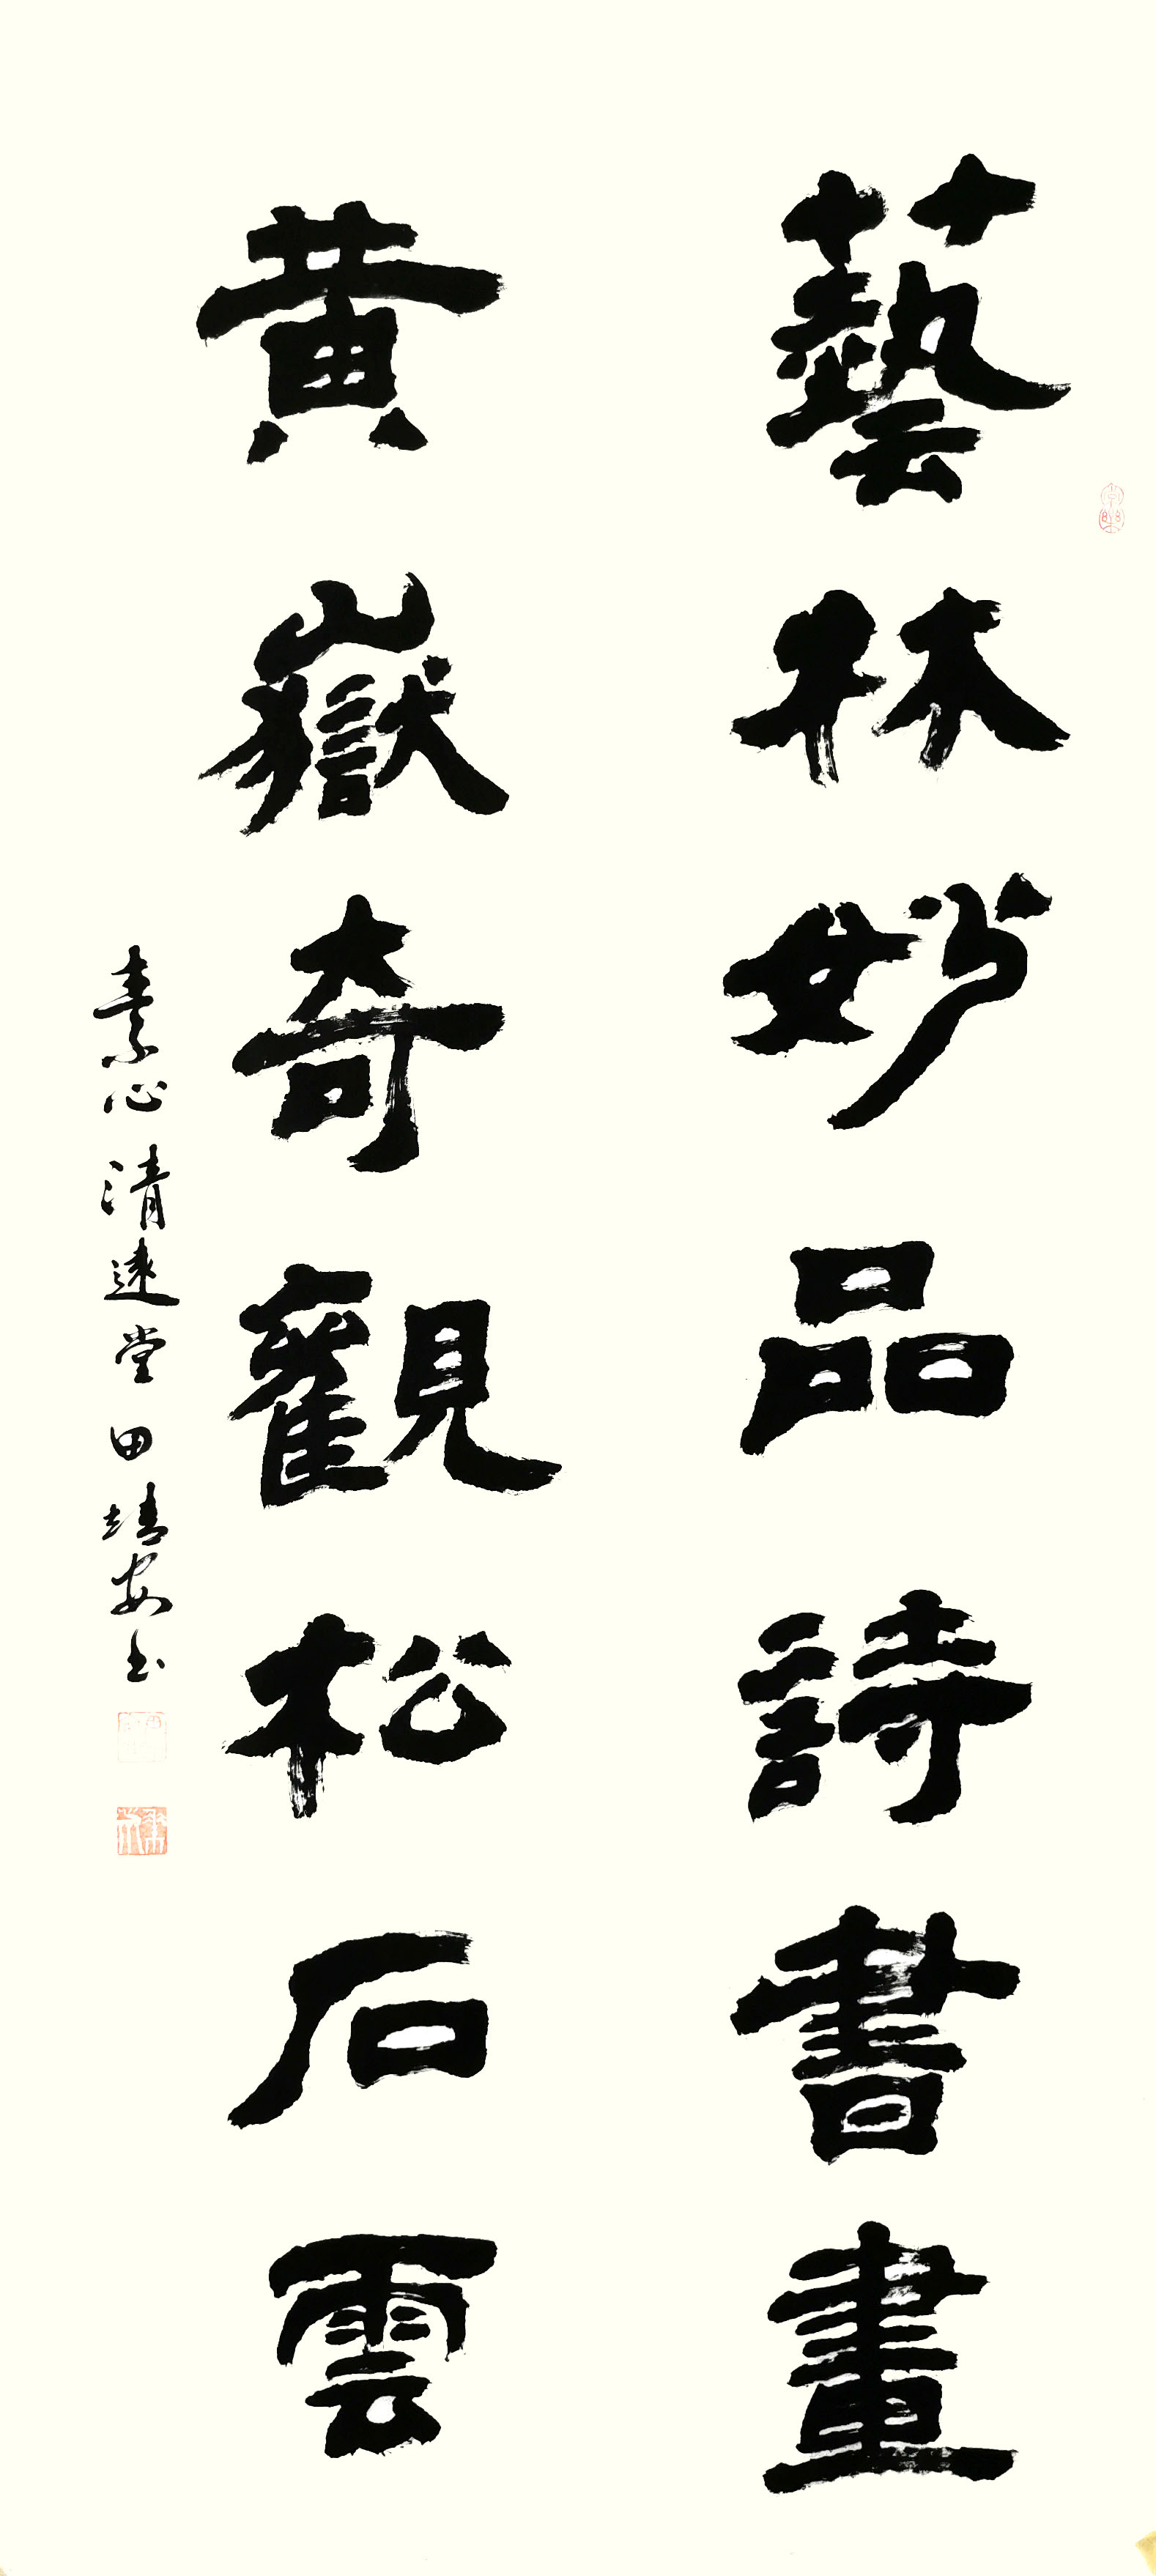 藝林妙品詩書畫
黃嶽奇觀松石雲
素心清遠堂田靖安书